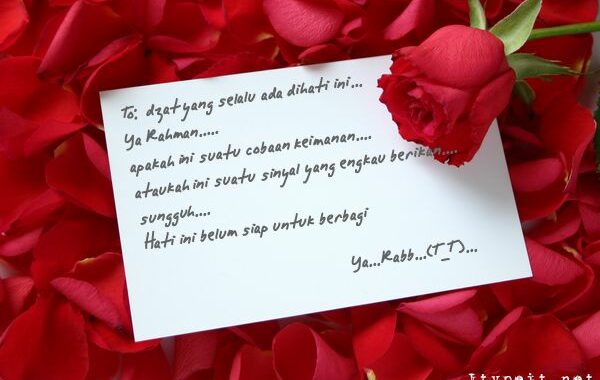 To: dzat yang selalu ada dihati ini...
Ya Rahman.....
apakah ini suatu cobaan keimanan....
ataukah ini suatu sinyal yang engkau berikan....
sungguh....
Hati ini belum siap untuk berbagi
Ya...Rabb...(T_T)...